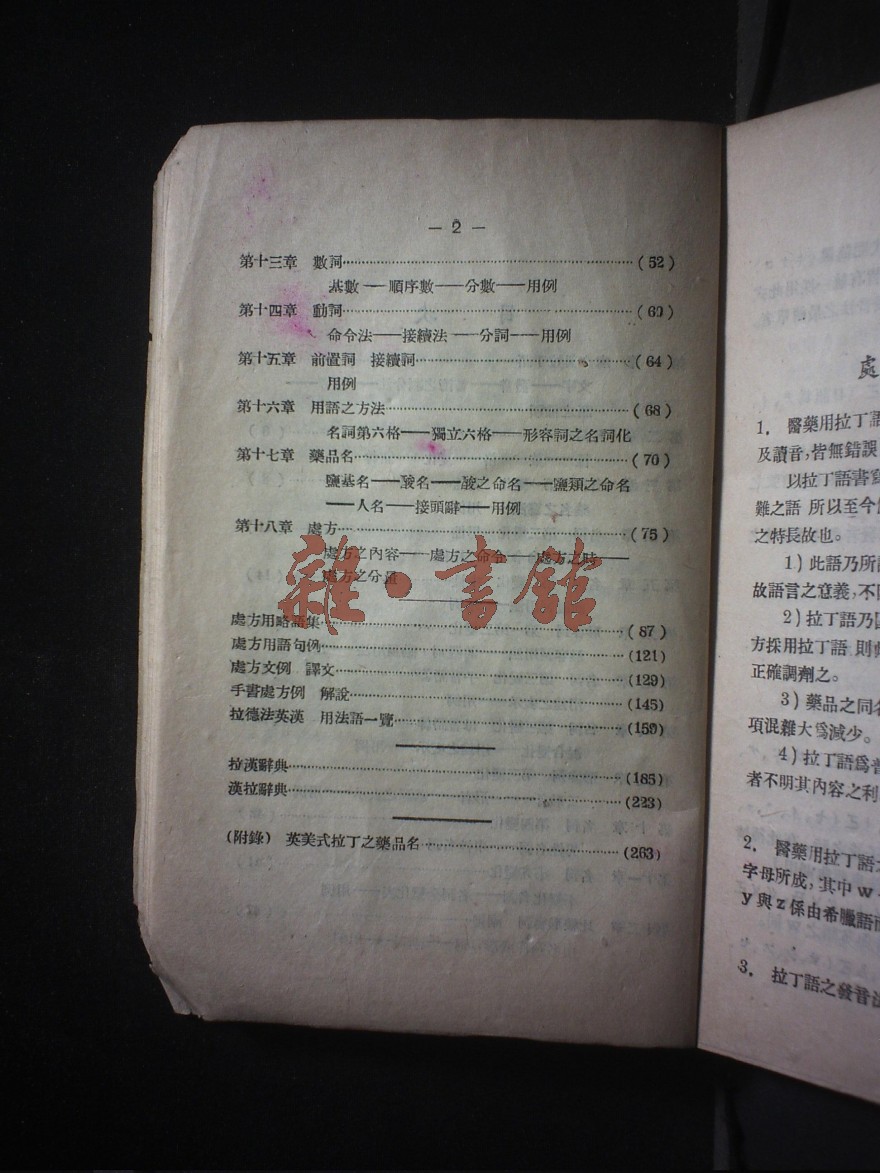 — 2 —
第十三章 數詞……(52)
基數——順序數——分數——用例
第十四章 動詞……(60)
命令法——接續法——分詞——用例
第十五章 前置詞 接續詞……(64)
用例
第十六章 用語之方法……(68)
名詞第六格——獨立六格——形容詞之名詞化
第十七章 藥品名……(70)
鹽基名——酸名——酸之命名——鹽類之命名
——人名——接頭辭——用例
第十八章 處方……(75)
處方之內容——處方之命令——處方之時——
處方之分量
處方用略語集……(87)
處方用語句例……(121)
處方文例 譯文……(129)
手書處方例 解說……(145)
拉德法英漢 用法語一覽……(159)
拉漢辭典……(185)
漢拉辭典……(223)
(附錄) 英美式拉丁之藥品名……(263)
雜·書舘
處
1. 醫藥用拉丁語
及讀音,皆無錯誤
以拉丁語書寫
難之語 所以至今
之特長故也。
1) 此語乃所
故語言之意義,不
2) 拉丁語乃
方採用拉丁語 則
正確調劑之。
3) 藥品之同名
項混雜大爲減少。
4) 拉丁語爲普
者不明其內容之利
2. 醫藥用拉丁語
字母所成,其中w
y與z係由希臘語
3. 拉丁語之發音法